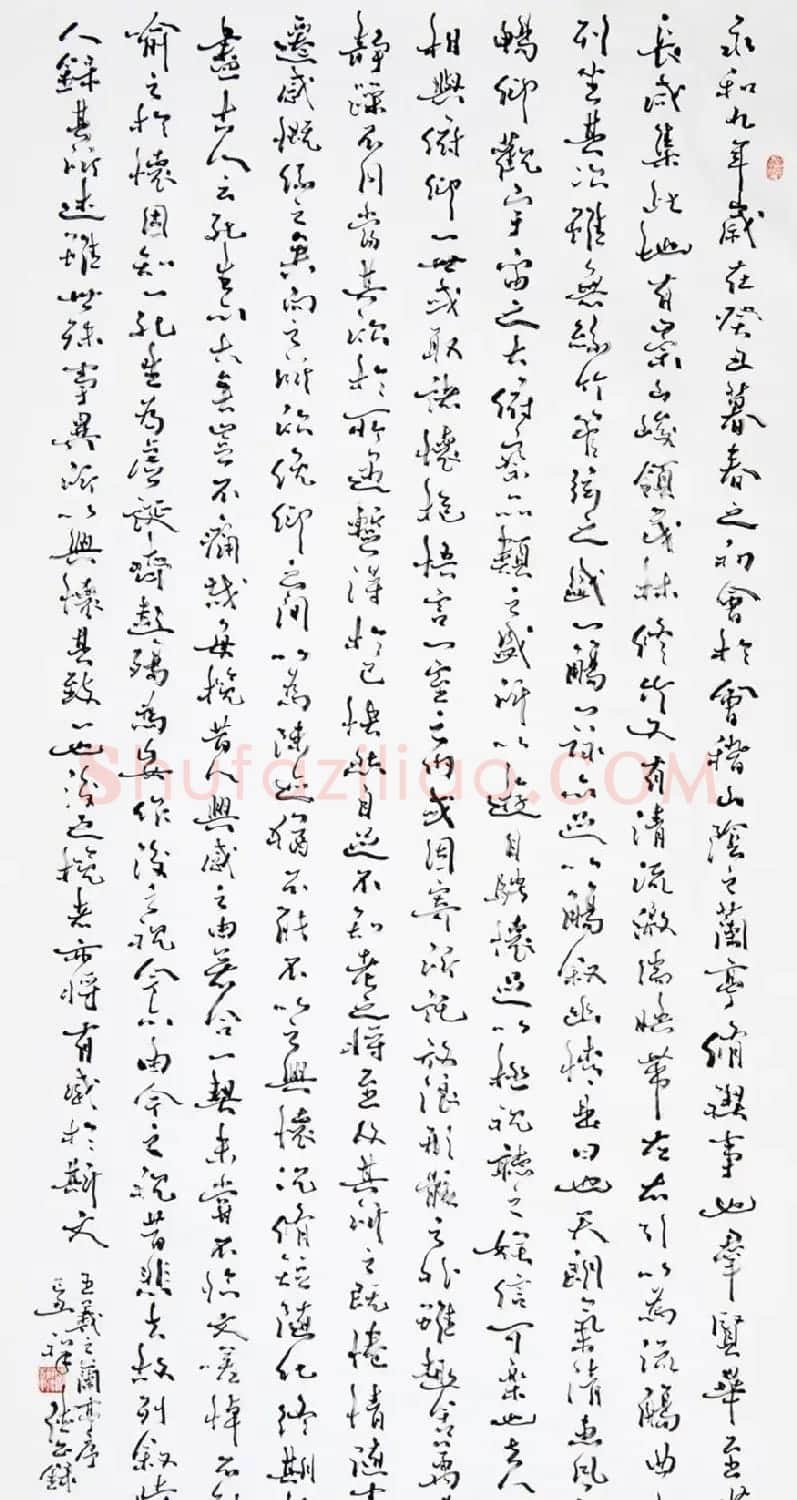 永和九年歲在癸丑暮春之初會於會稽山陰之蘭亭脩禊事也羣賢畢至
長咸集此地有崇山峻領茂林修竹又有清流激湍映帶左右引以為流觴曲
列坐其次雖無絲竹管弦之盛一觴一詠亦足以暢叙幽情是日也天朗氣清惠風
暢仰觀宇宙之大俯察品類之盛所以遊目騁懷足以極視聽之娛信可樂也夫人
相與俯仰一世或取諸懷抱悟言一室之內或因寄所託放浪形骸之外雖趣舍萬
靜躁不同當其欣於所遇暫得於己快然自足不知老之將至及其所之既惓情隨事
遷感慨係之矣向之所欣俛仰之間以為陳迹猶不能不以之興懷況脩短隨化終期
盡古人云死生亦大矣豈不痛哉每攬昔人興感之由若合一契未嘗不臨文嗟悼不
喻之於懷固知一死生為虛誕齊彭殤為妄作後之視今亦由今之視昔悲夫故列叙時
人錄其所述雖世殊事異所以興懷其致一也後之攬者亦將有感於斯文
王羲之蘭亭序
Shufaziliao.COM